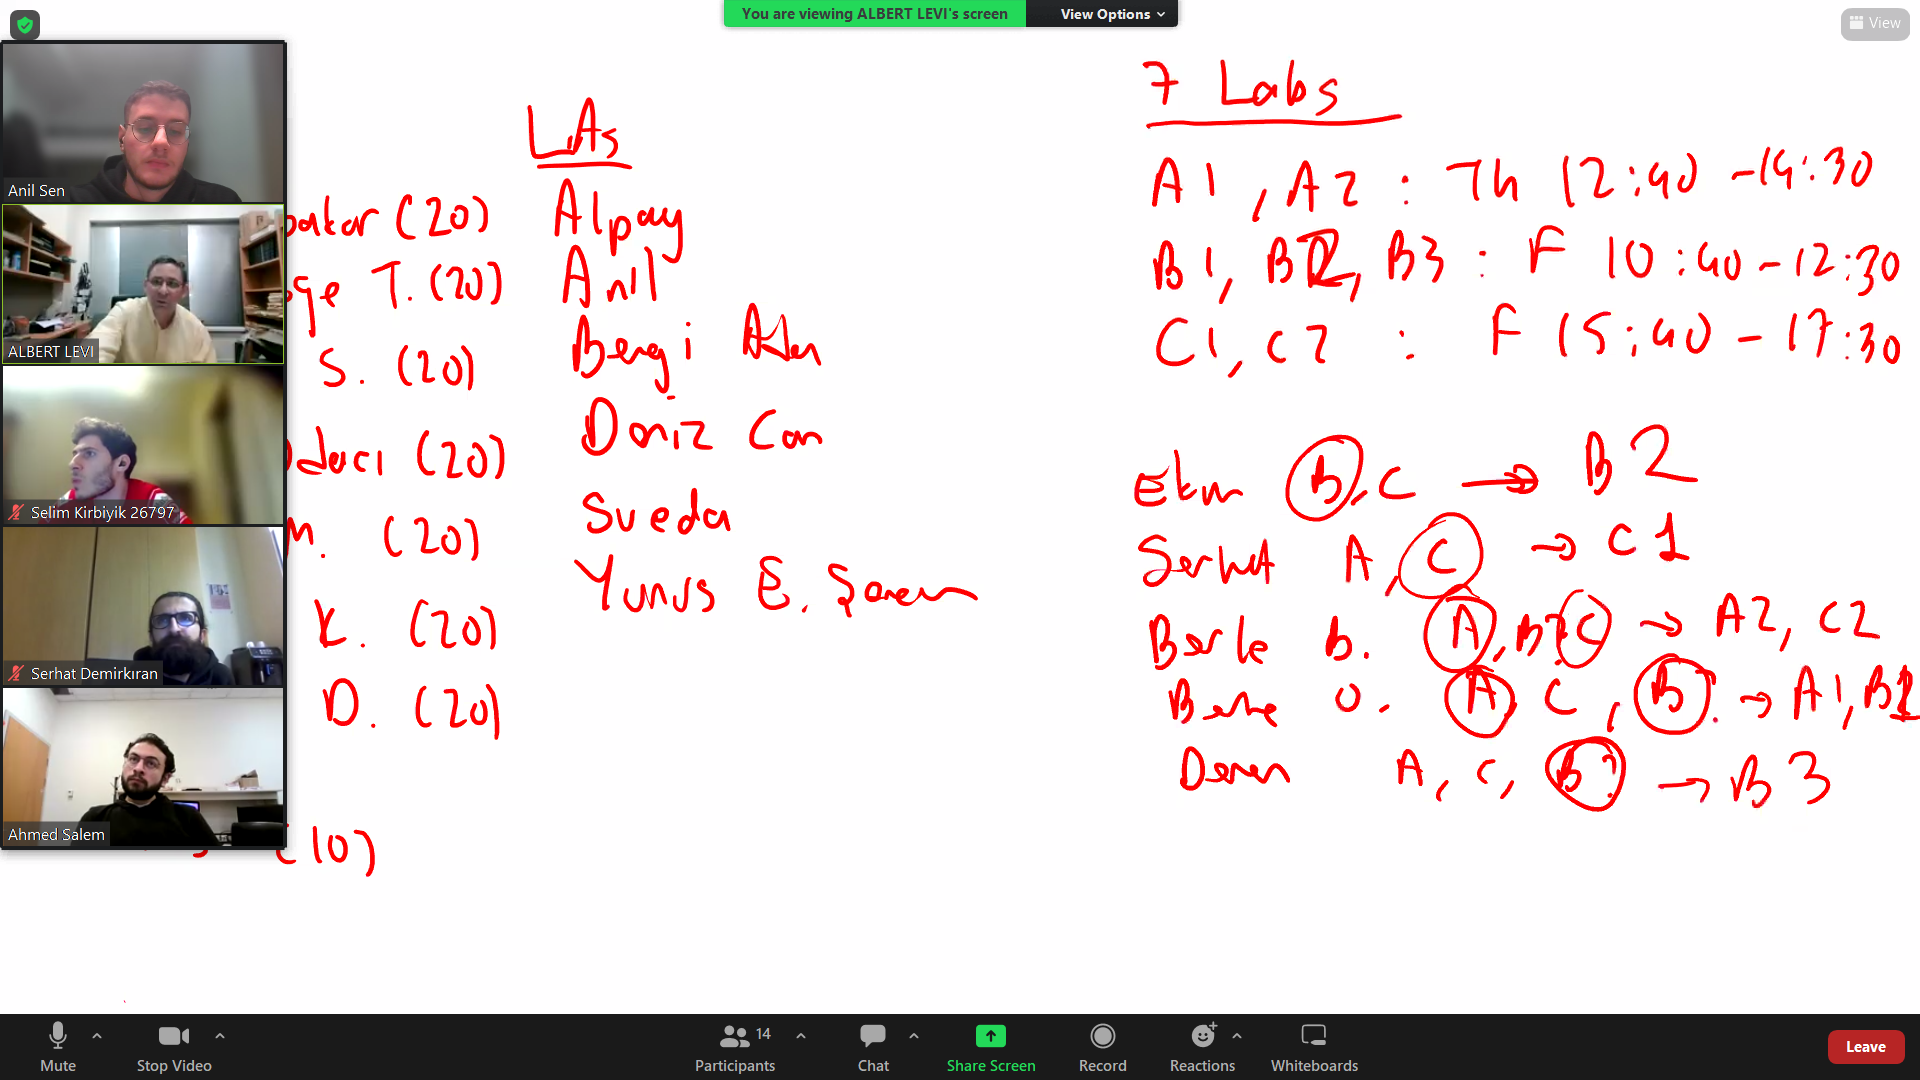 You are viewing ALBERT LEVI's screen
View Options
View
Anil Sen
ALBERT LEVI
Selim Kirbiyik 26797
Serhat Demirkıran
Ahmed Salem
(20)
T. (20)
S. (20)
(20)
(20)
K. (20)
D. (20)
(10)
LAs
Alpay
Anıl
Bengi
Deniz Can
Sueda
Yunus E.
7 Labs
A1, A2 : Th 12:40 - 14:30
B1, B2, B3 : F 10:40 - 12:30
C1, C2 : F 15:40 - 17:30
Ekin B, C → B2
Serhat A, C → C1
Berke B. A, B? C → A2, C2
Berke O. A, C, B → A1, B1
Deren A, C, B? → B3
Mute
Stop Video
Participants
14
Chat
Share Screen
Record
Reactions
Whiteboards
Leave